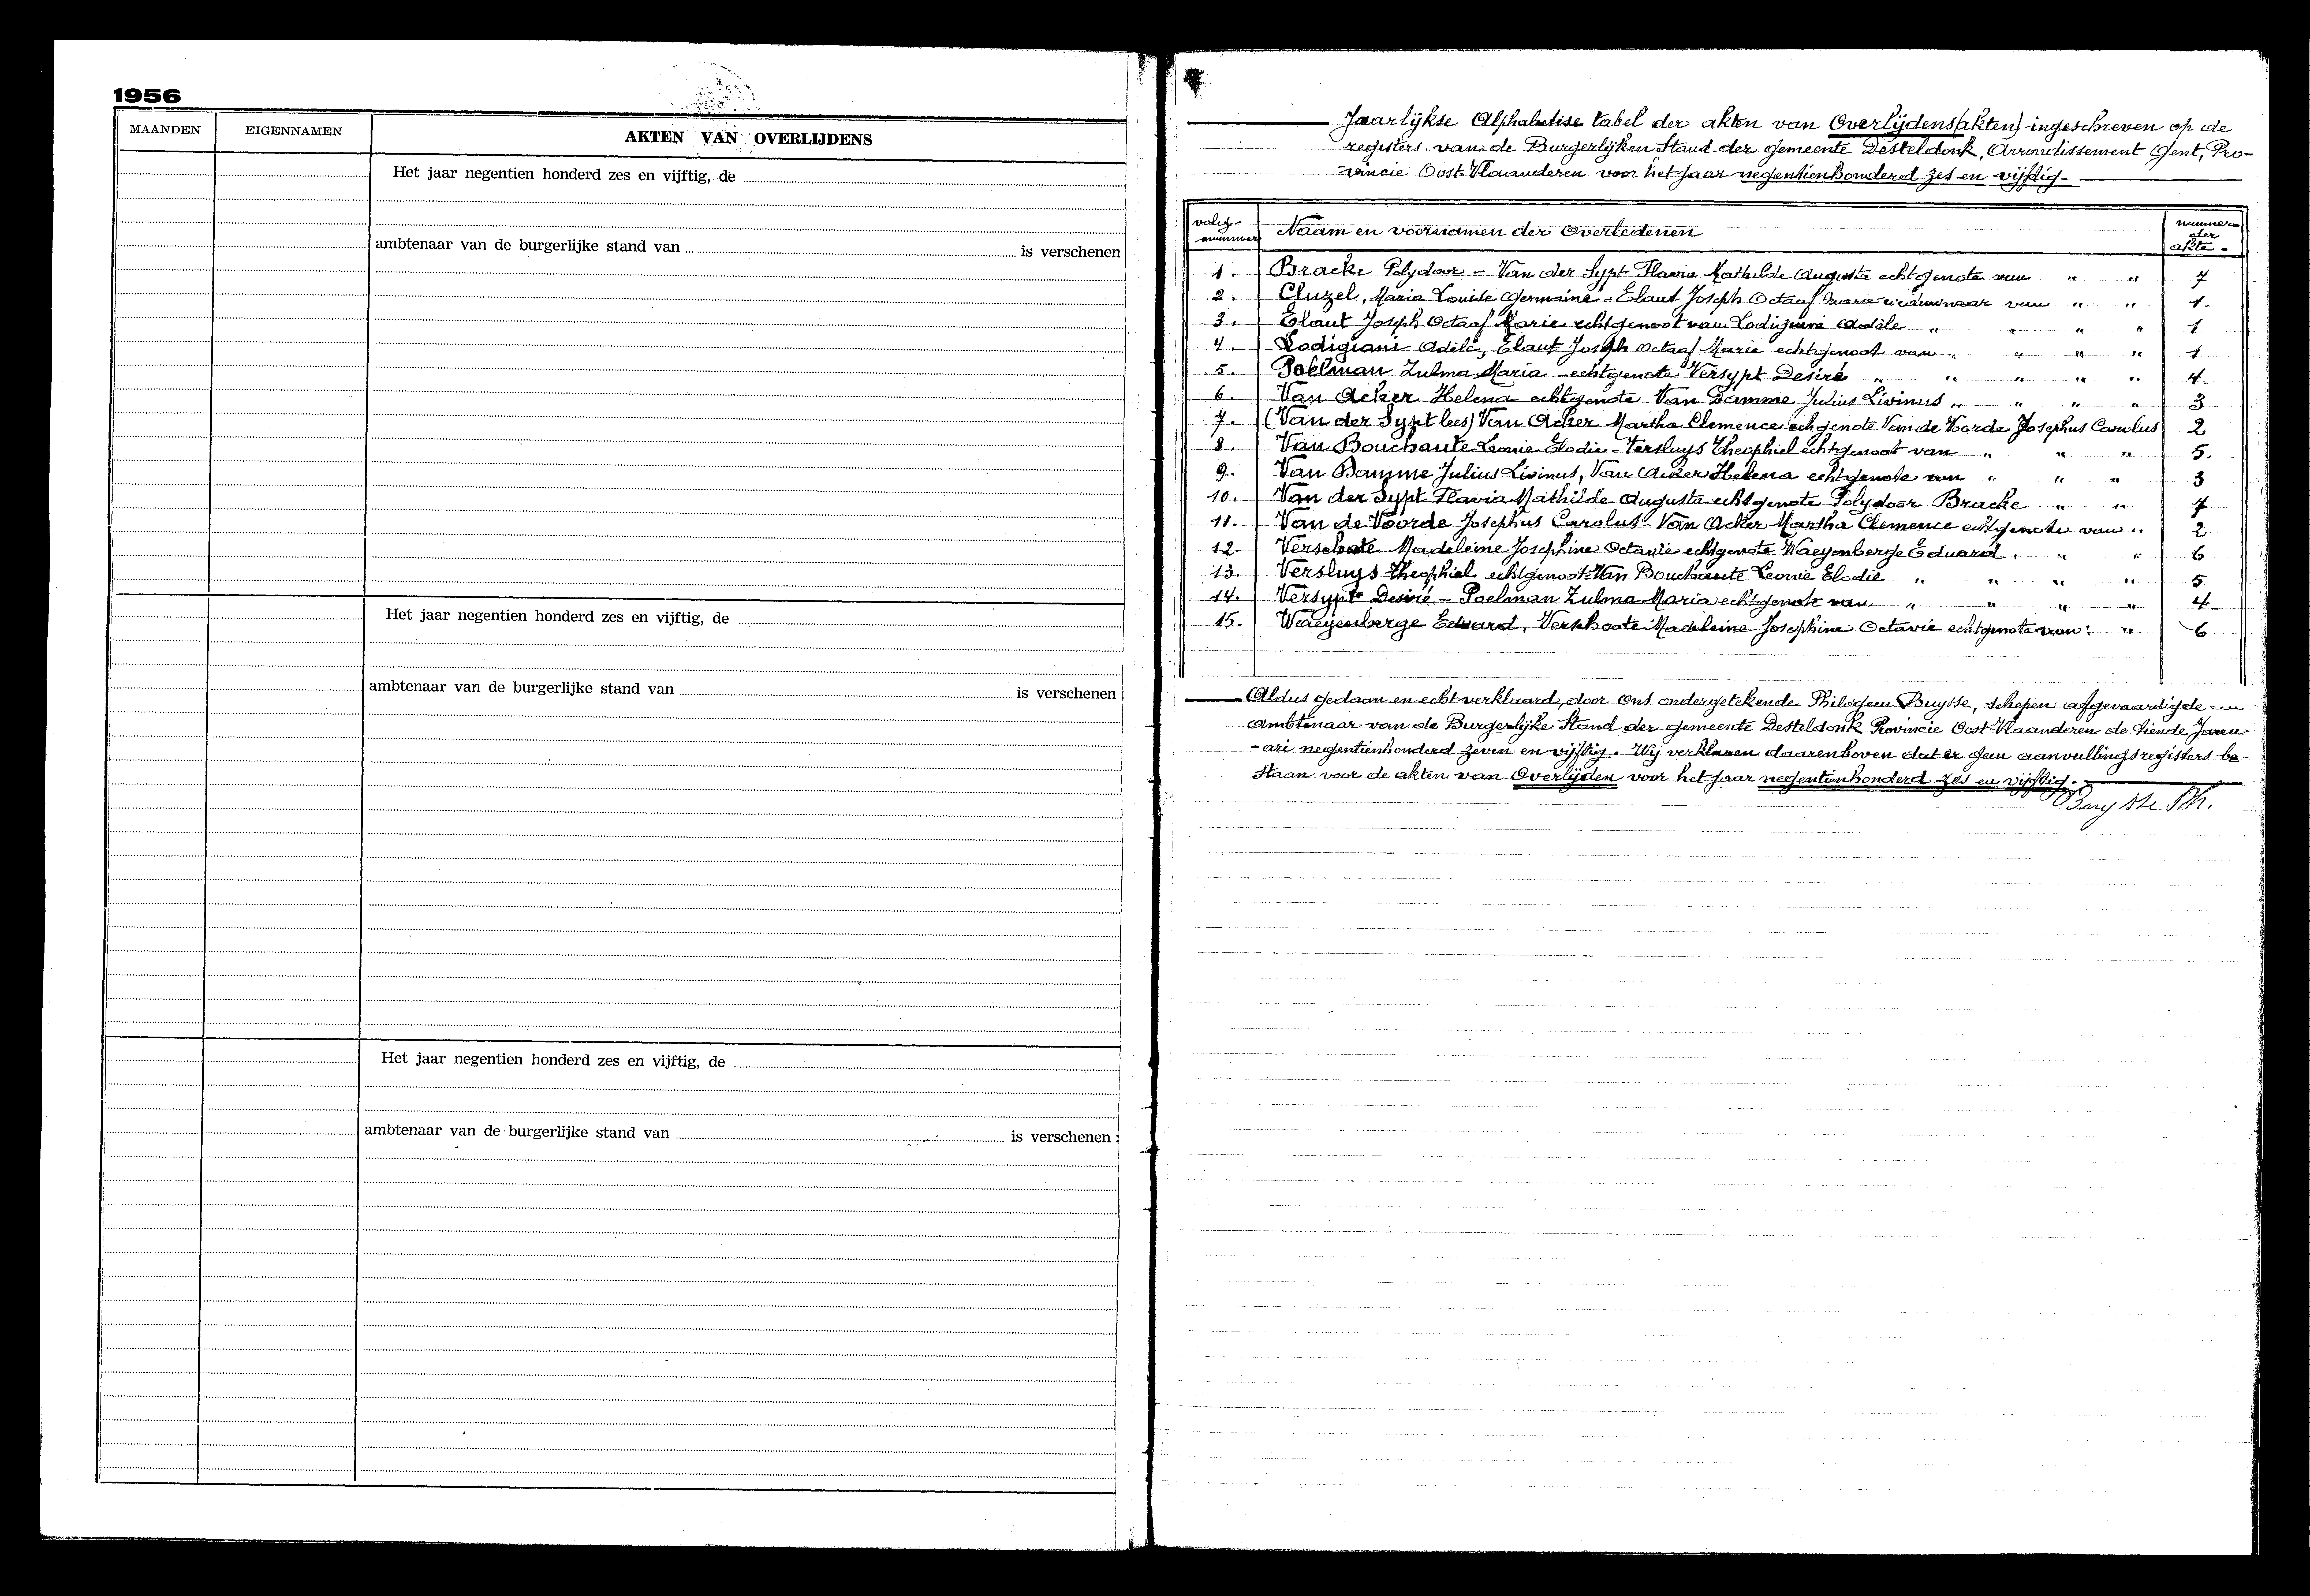 1956
MAANDEN
EIGENNAMEN
AKTEN VAN OVERLIJDENS
Het jaar negentien honderd zes en vijftig, de
ambtenaar van de burgerlijke stand van
is verschenen
Het jaar negentien honderd zes en vijftig, de
ambtenaar van de burgerlijke stand van
is verschenen
Het jaar negentien honderd zes en vijftig, de
ambtenaar van de burgerlijke stand van
is verschenen :
Jaarlijkse Alphabetise tabel der akten van Overlijdens(akten) ingeschreven op de
registers van de Burgerlijken Stand der gemeente Desteldonk, Arrondissement Gent, Pro-
-vincie Oost-Vlaanderen voor het jaar negentienhonderd zes en vijftig.-
volg-nummer
Naam en voornamen der Overledenen
nummer der akte.
1. Bracke Polydoor - Van der Sypt Flavia Mathilde Augusta echtgenote van " " 7
2. Cluzel, Maria Louise Germaine - Elaut Joseph Octaaf Marie weduwnaar van " " 1.
3. Elaut Joseph Octaaf Marie echtgenoot van Lodigiani Adèle " " " " 1
4. Lodigiani Adèle, Elaut Joseph Octaaf Marie echtgenoot van " " " " 1
5. Poelman Zulma Maria - echtgenote Versypt Desiré " " " " " 4.
6. Van Acker Helena echtgenote Van Damme Julius Livinus " " " " 3
7. (Van der Sypt lees) Van Acker Martha Clemence echgenote Van de Voorde Josephus Carolus 2
8. Van Bouchaute Leonie Elodie - Versluys Theophiel echtgenoot van " " " 5.
9. Van Damme Julius Livinus, Van Acker Helena echtgenote van " " " 3
10. Van der Sypt Flavia Mathilde Augusta echtgenote Polydoor Bracke " " 7
11. Van de Voorde Josephus Carolus - Van Acker Martha Clemence echtgenote van " 2
12. Verschote Madeleine Josephine Octavie echtgenote Waeyenberge Eduard. " " 6
13. Versluys Theophiel echtgenoot Van Bouchaute Leonie Elodie " " " " 5
14. Versypt Desiré - Poelman Zulma Maria echtgenote van " " " " 4-
15. Waeyenberge Eduard, Verschoote Madeleine Josephine Octavie echtgenote van: " 6
Aldus gedaan en echt verklaard, door ons ondergetekende Philogeen Buysse, schepen afgevaardigde
Ambtenaar van de Burgerlijke Stand der gemeente Desteldonk Provincie Oost-Vlaanderen de tiende Janu-
-ari negentienhonderd zeven en vijftig. Wij verklaren daarenboven dat er geen aanvullingsregisters be-
staan voor de akten van Overlijden voor het jaar negentienhonderd zes en vijftig.
Buysse Ph.